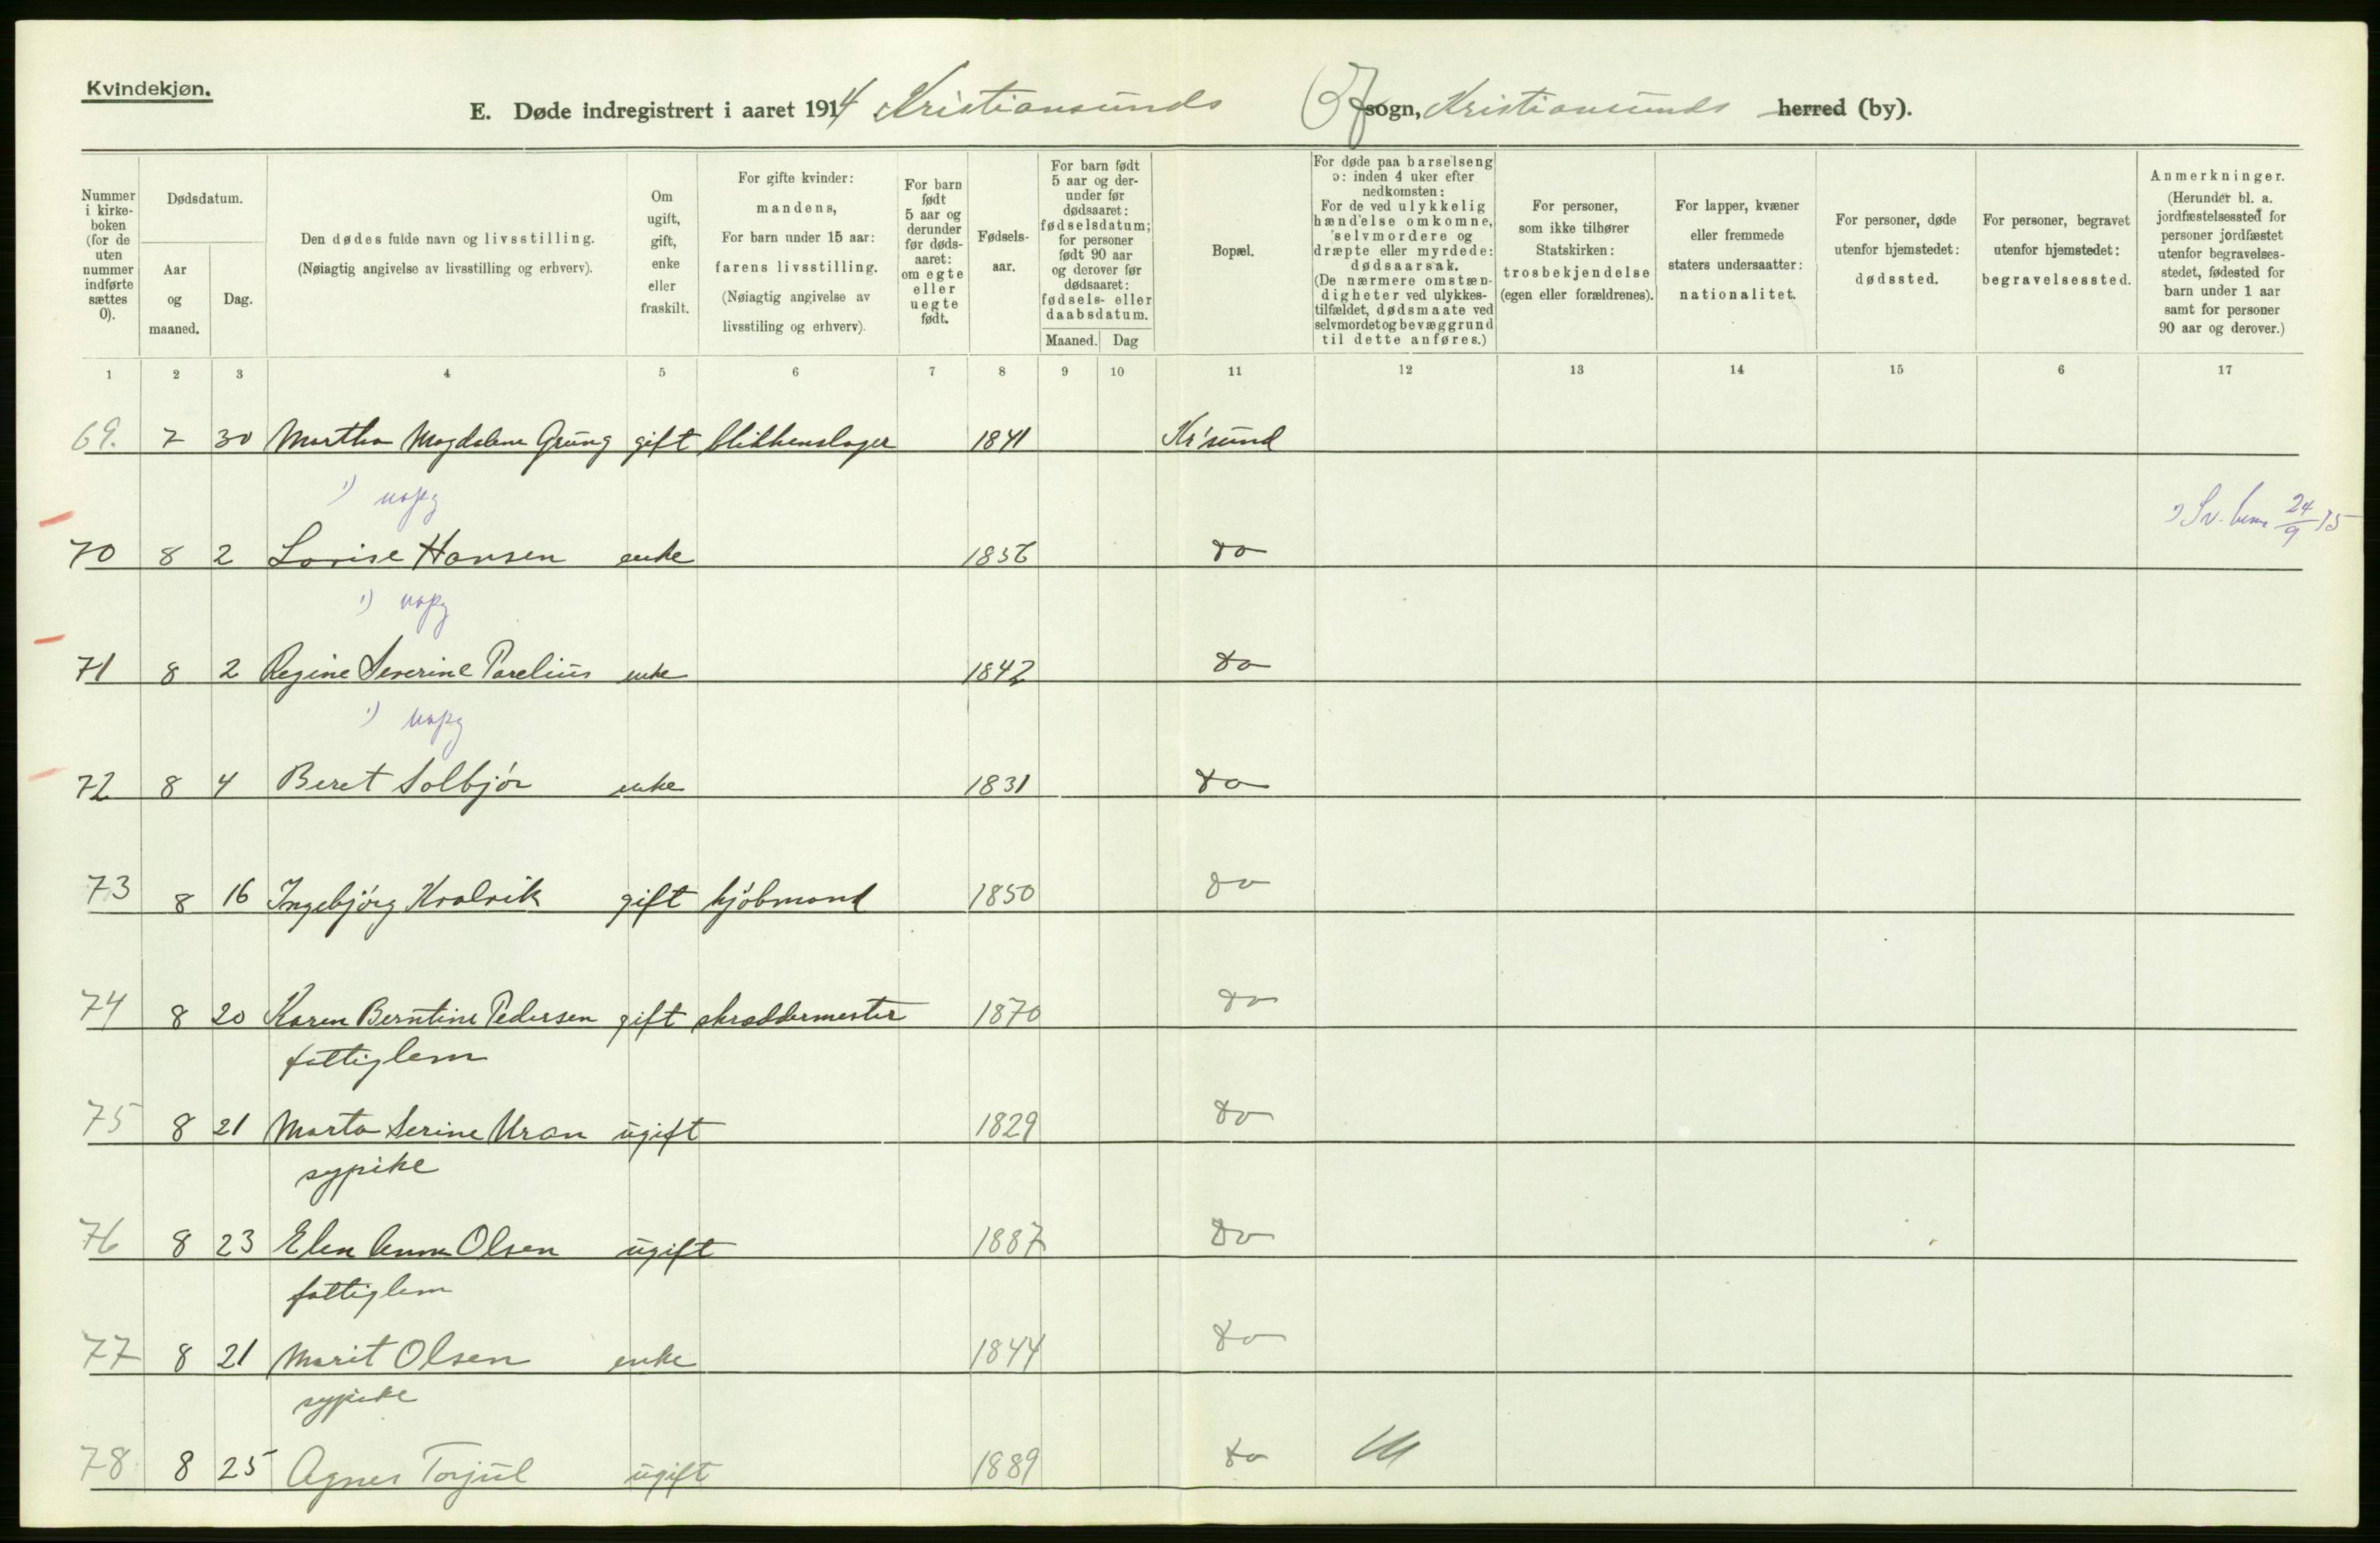 Kvindekjøn.
E. Døde indregistrert i aaret 1914 Kristiansunds sogn, Kristiansunds herred (by).
Nummer i kirke-boken (for de uten nummer indførte sættes 0).
Dødsdatum.
Aar og maaned.
Dag.
Den dødes fulde navn og livsstilling.
(Nøiagtig angivelse av livsstilling og erhverv).
Om ugift, gift, enke eller fraskilt.
For gifte kvinder: mandens, For barn under 15 aar: farens livsstilling. (Nøiagtig angivelse av livsstiling og erhverv).
For barn født 5 aar og derunder før døds-aaret: om egte eller uegte født.
Fødsels-aar.
For barn født 5 aar og der-under før dødsaaret: fødselsdatum; for personer født 90 aar og derover før dødsaaret: fødsels- eller daabsdatum.
Maaned. Dag
Bopæl.
For døde paa barselseng ɔ: inden 4 uker efter nedkomsten: For de ved ulykkelig hændelse omkomne, selvmordere og dræpte eller myrdede: dødsaarsak. (De nærmere omstæn-digheter ved ulykkes-tilfældet, dødsmaate ved selvmordet og bevæggrund til dette anføres.)
For personer, som ikke tilhører Statskirken: trosbekjendelse (egen eller forældrenes).
For lapper, kvæner eller fremmede staters undersaatter: nationalitet.
For personer, døde utenfor hjemstedet: dødssted.
For personer, begravet utenfor hjemstedet: begravelsessted.
Anmerkninger. (Herunder bl. a. jordfæstelsessted for personer jordfæstet utenfor begravelses-stedet, fødested for barn under 1 aar samt for personer 90 aar og derover.)
1 2 3 4 5 6 7 8 9 10 11 12 13 14 15 6 17
69. 7 30 Martha Magdalene Grung gift blikkenslager 1841 Kr'sund
1) uopg
70 8 2 Lovise Hansen enke 1856 do
1) uopg
71 8 2 Regine Severine Parelius enke 1842 do
1) uopg
72 8 4 Beret Solbjør enke 1831 do
73 8 16 Ingebjørg Kvalvik gift kjøbmand 1850 do
74 8 20 Karen Berntine Pedersen gift skræddermester 1870 do
fattiglem
75 8 21 Marta Serine Uran ugift 1829 do
sypike
76 8 23 Elen Anna Olsen ugift 1887 do
fattiglem
77 8 21 Marit Olsen enke 1844 do
sypike
78 8 25 Agnes Torjul ugift 1889 do